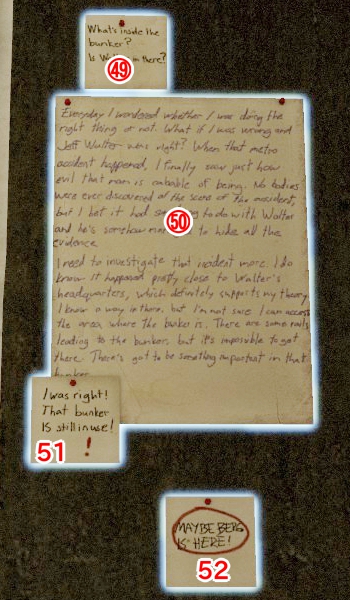 What's inside the
bunker?
Is in there?
49
Everyday I wondered whether I was doing the
right thing or not. What if I was wrong and
Jeff Walter was right? When that metro
accident happened, I finally saw just how
evil that man is capable of being. No bodies
were ever discovered at the scene of the accident,
but I bet it had to do with Walter
and he's somehow to hide all the
evidence.
50
I need to investigate that incident more. I do
know it happened pretty close to Walter's
headquarters, which definitely supports my theory.
I know a way in there, but I'm not sure I can access
the area, where the bunker is. There are some rails
leading to the bunker, but it's impossible to get
there. There's got to be something important in that
bunker.
I was right!
That bunker
IS still in use!
!
51
MAYBE BERG
IS HERE!
52